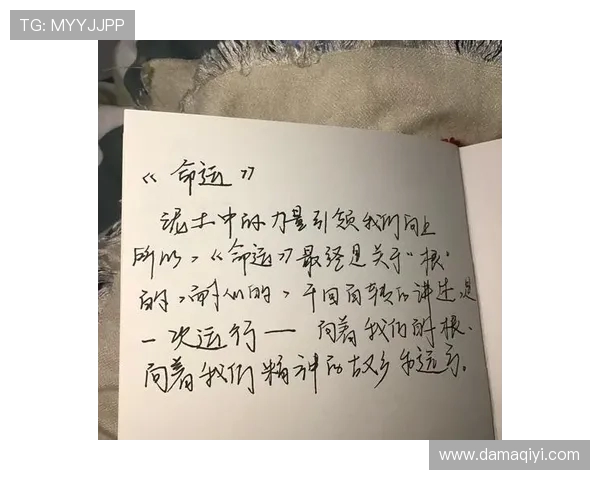 TG: MYYJJPP
《命运》
泥土中的力量引领我们向上
所以,《命运》最终是关于“根”
的,耐人的,千回百转的讲述,是
一次运行一 向着我们的根、
向着我们精神的故乡的运行。
www.damaqiyi.com